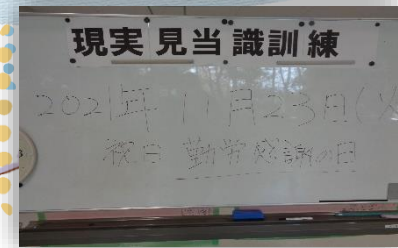 現実見当識訓練
2021年11月23日(火
祝日 勤労感謝の日